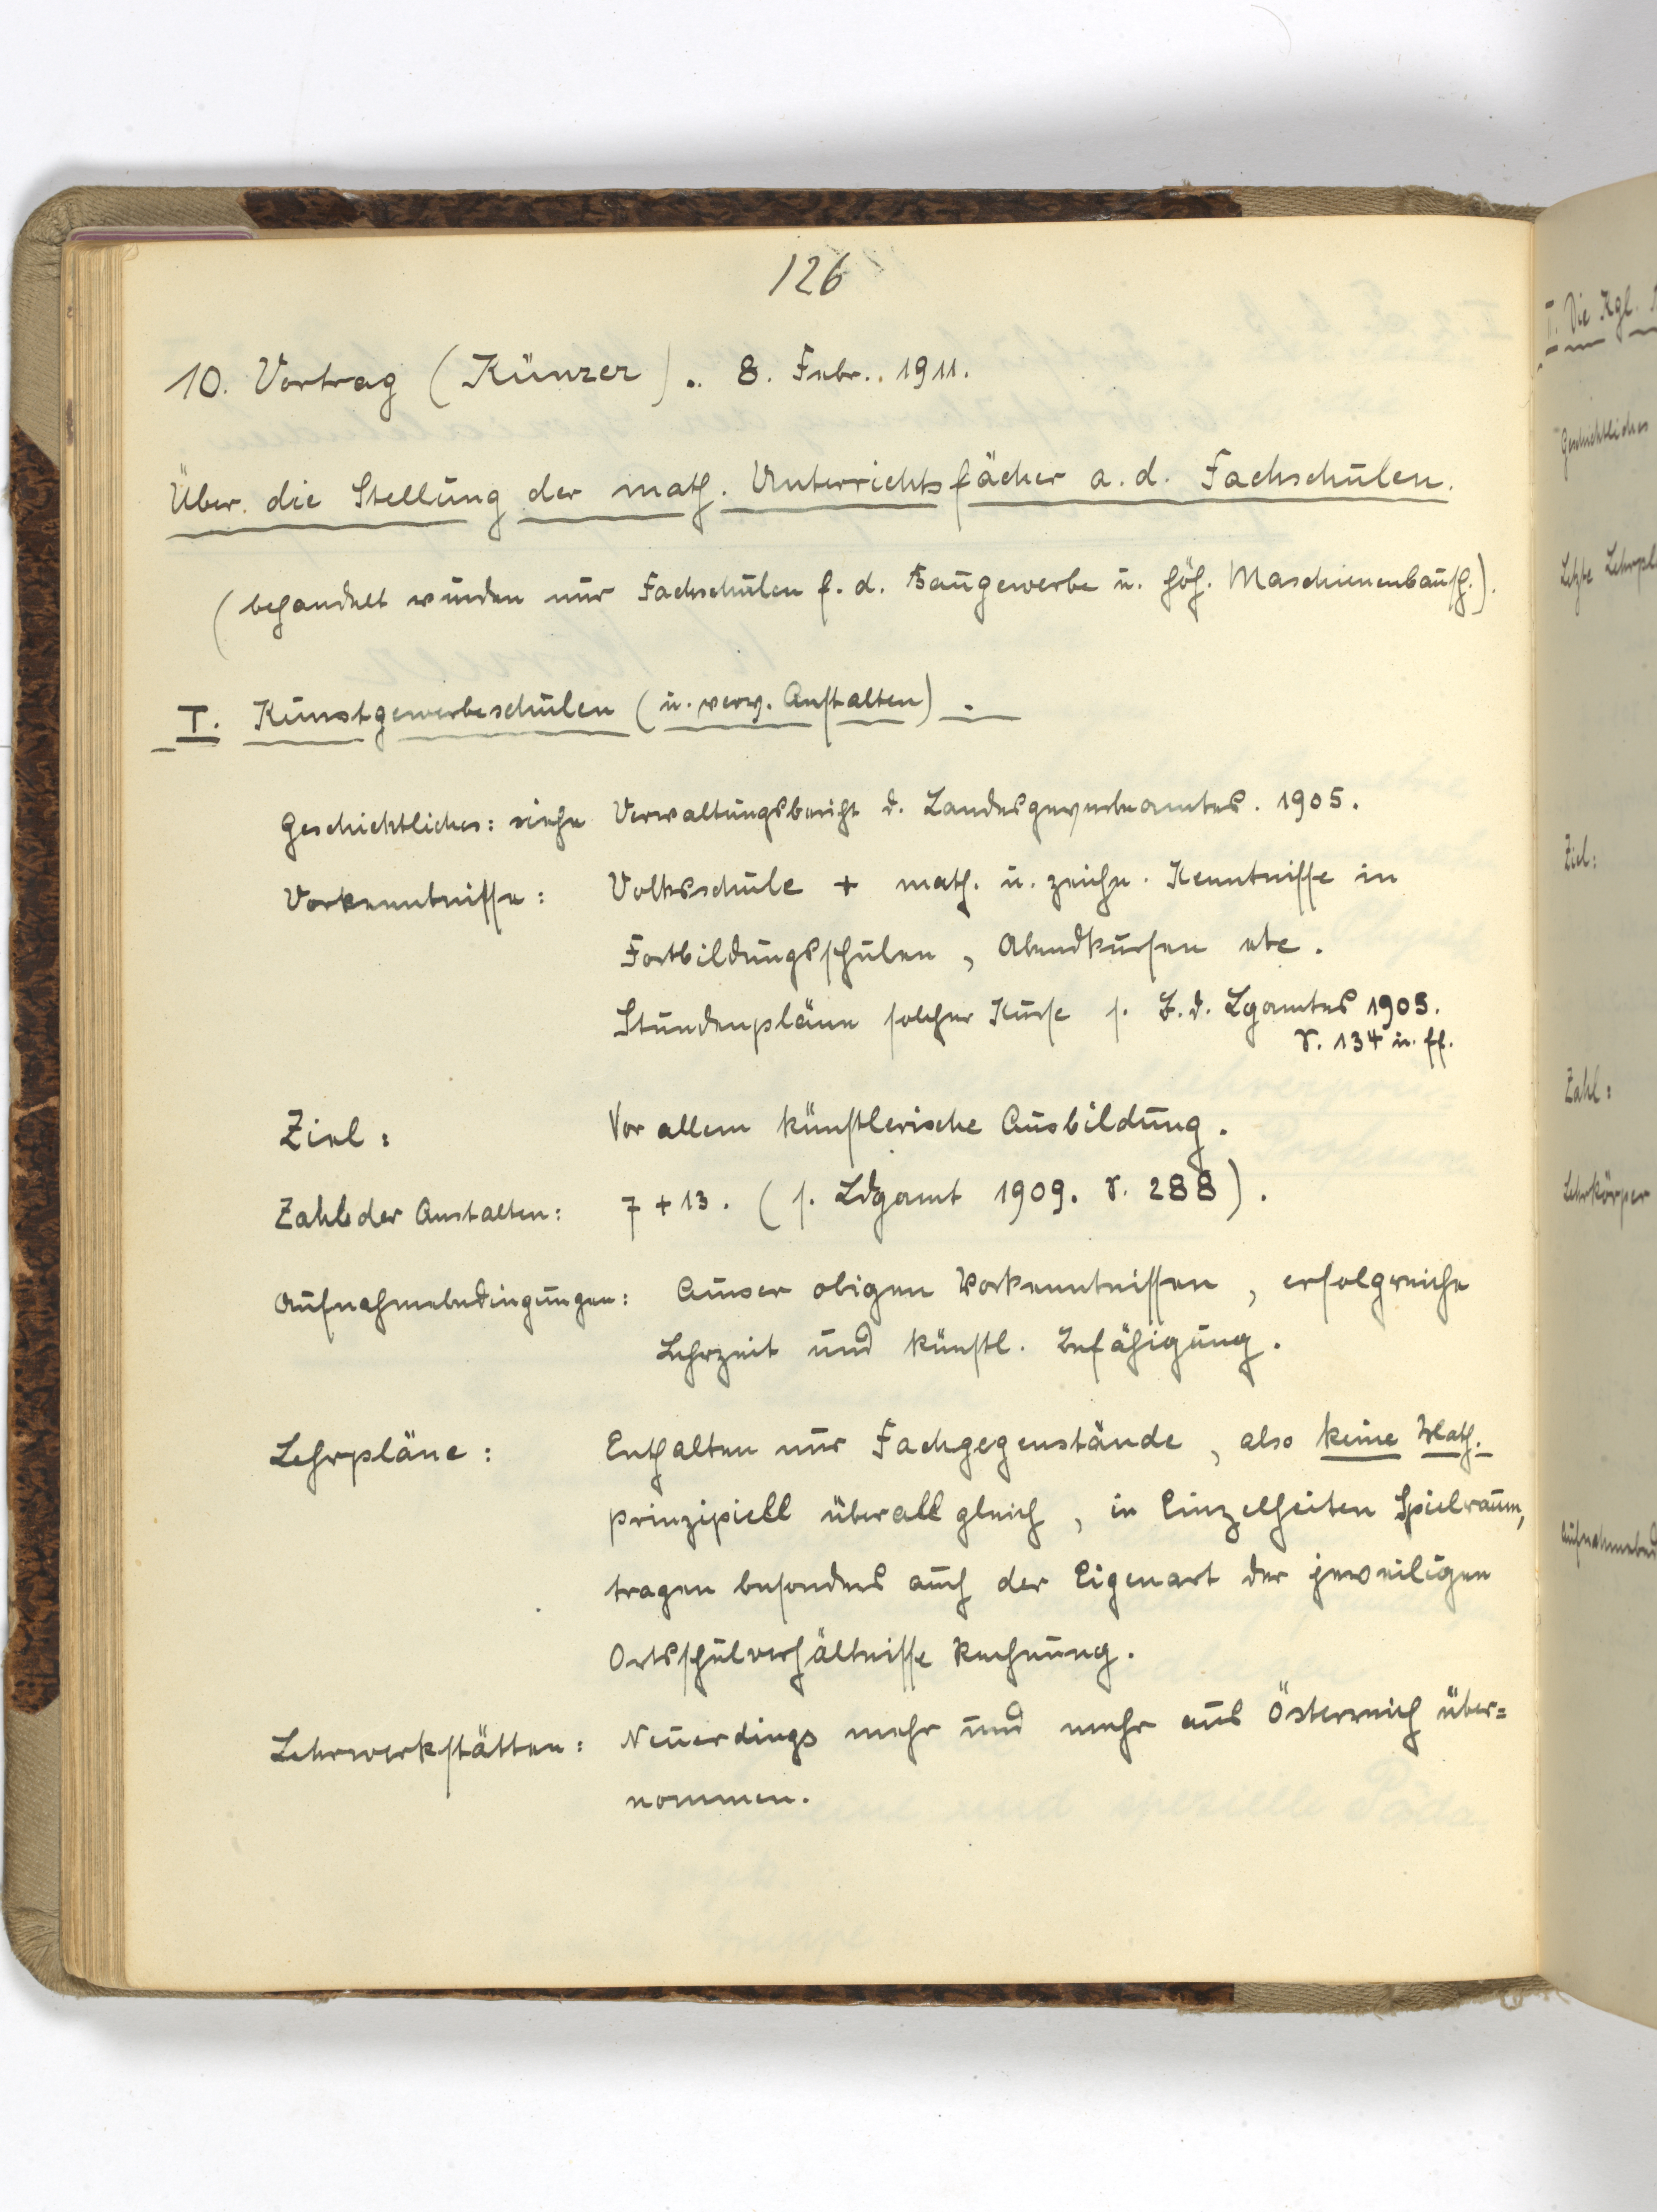 126
10. Vortrag (Künzer). 8. Febr. 1911.
Über die Stellung der math. Unterrichtsfächer a. d. Fachschulen.
(behandelt wurden nur Fachschulen f. d. Baugewerbe u. höh. Maschinenbausch.).
I. Kunstgewerbeschulen (u. verw. Anstalten).
Geschichtliches: siehe Verwaltungsbericht d. Landesgewerbeamtes. 1905.
Vorkenntnisse: Volksschule + math. u. zeichn. Kenntnisse in
Fortbildungsschulen, Abendkursen etc.
Stundenpläne solcher Kurse s. B. d. Lgamtes 1905.
S. 134 u. ff.
Ziel: Vor allem künstlerische Ausbildung.
Zahl der Anstalten: 7 + 13. (s. Ldgamt 1909. S. 288).
Aufnahmebedingungen: Ausser obigen Vorkenntnissen, erfolgreiche
Lehrzeit und künstl. Befähigung.
Lehrpläne: Enthalten nur Fachgegenstände, also keine Math.
prinzipiell überall gleich, in Einzelheiten Spielraum,
tragen besonders auch der Eigenart der jeweiligen
Ortsschulverhältnisse Rechnung.
Lehrwerkstätten: Neuerdings mehr und mehr aus Österreich über=
nommen.
I. Die Kgl.
Geschichtliches
Letzte Lehrpl
Ziel:
Zahl:
Lehrkörper